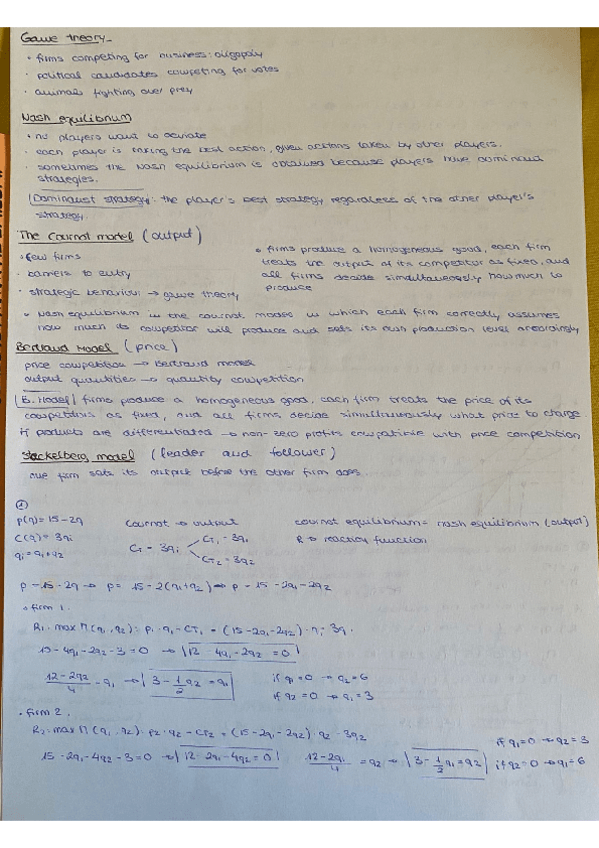 Game theory_
· firms competing for business: oligopoly
· political candidates competing for votes
· animals fighting over prey
Nash equilibrium
· no players want to deviate
· each player is taking the best action, given actions taken by other players.
· sometimes the Nash equilibrium is obtained because players have dominant
strategies.
Dominant strategy: the player's best strategy regardless of the other player's
strategy.
The Cournot model (output)
· few firms
· barriers to entry
· strategic behaviour → game theory
· firms produce a homogeneous good, each firm
treats the output of its competitor as fixed, and
all firms decide simultaneously how much to
produce
· Nash equilibrium in the cournot model in which each firm correctly assumes
how much its competitor will produce and sets its own production level accordingly
Bertrand Model (price)
price competition → Bertrand model
output quantities → quantity competition
B. Model| firms produce a homogeneous good, each firm treats the price of its
competitors as fixed, and all firms decide simultaneously what price to charge
if products are differentiated → non-zero profits compatible with price competition
Stackelberg model (leader and follower)
one firm sets its output before the other firm does.
①
p(q) = 15 - 2q
C(q) = 3qi
qi = q1 + q2
Cournot → output
CT = 3qi
CT1 = 3q1
CT2 = 3q2
cournot equilibrium = nash equilibrium (output)
R → reaction function
p = 15 - 2q → p = 15 - 2(q1+q2) → p = 15 - 2q1 - 2q2
· firm 1.
R1: max Π(q1, q2): p1 · q1 - CT1 = (15 - 2q1 - 2q2) · q1 - 3q1
15 - 4q1 - 2q2 - 3 = 0 → |12 - 4q1 - 2q2 = 0|
12 - 2q2 / 4 = q1 → |3 - 1/2 q2 = q1|
if q1 = 0 → q2 = 6
if q2 = 0 → q1 = 3
· firm 2.
R2: max Π(q1, q2): p2 · q2 - CT2 = (15 - 2q1 - 2q2) · q2 - 3q2
15 - 2q1 - 4q2 - 3 = 0 → |12 - 2q1 - 4q2 = 0|
12 - 2q1 / 4 = q2 → |3 - 1/2 q1 = q2|
if q1 = 0 → q2 = 3
if q2 = 0 → q1 = 6